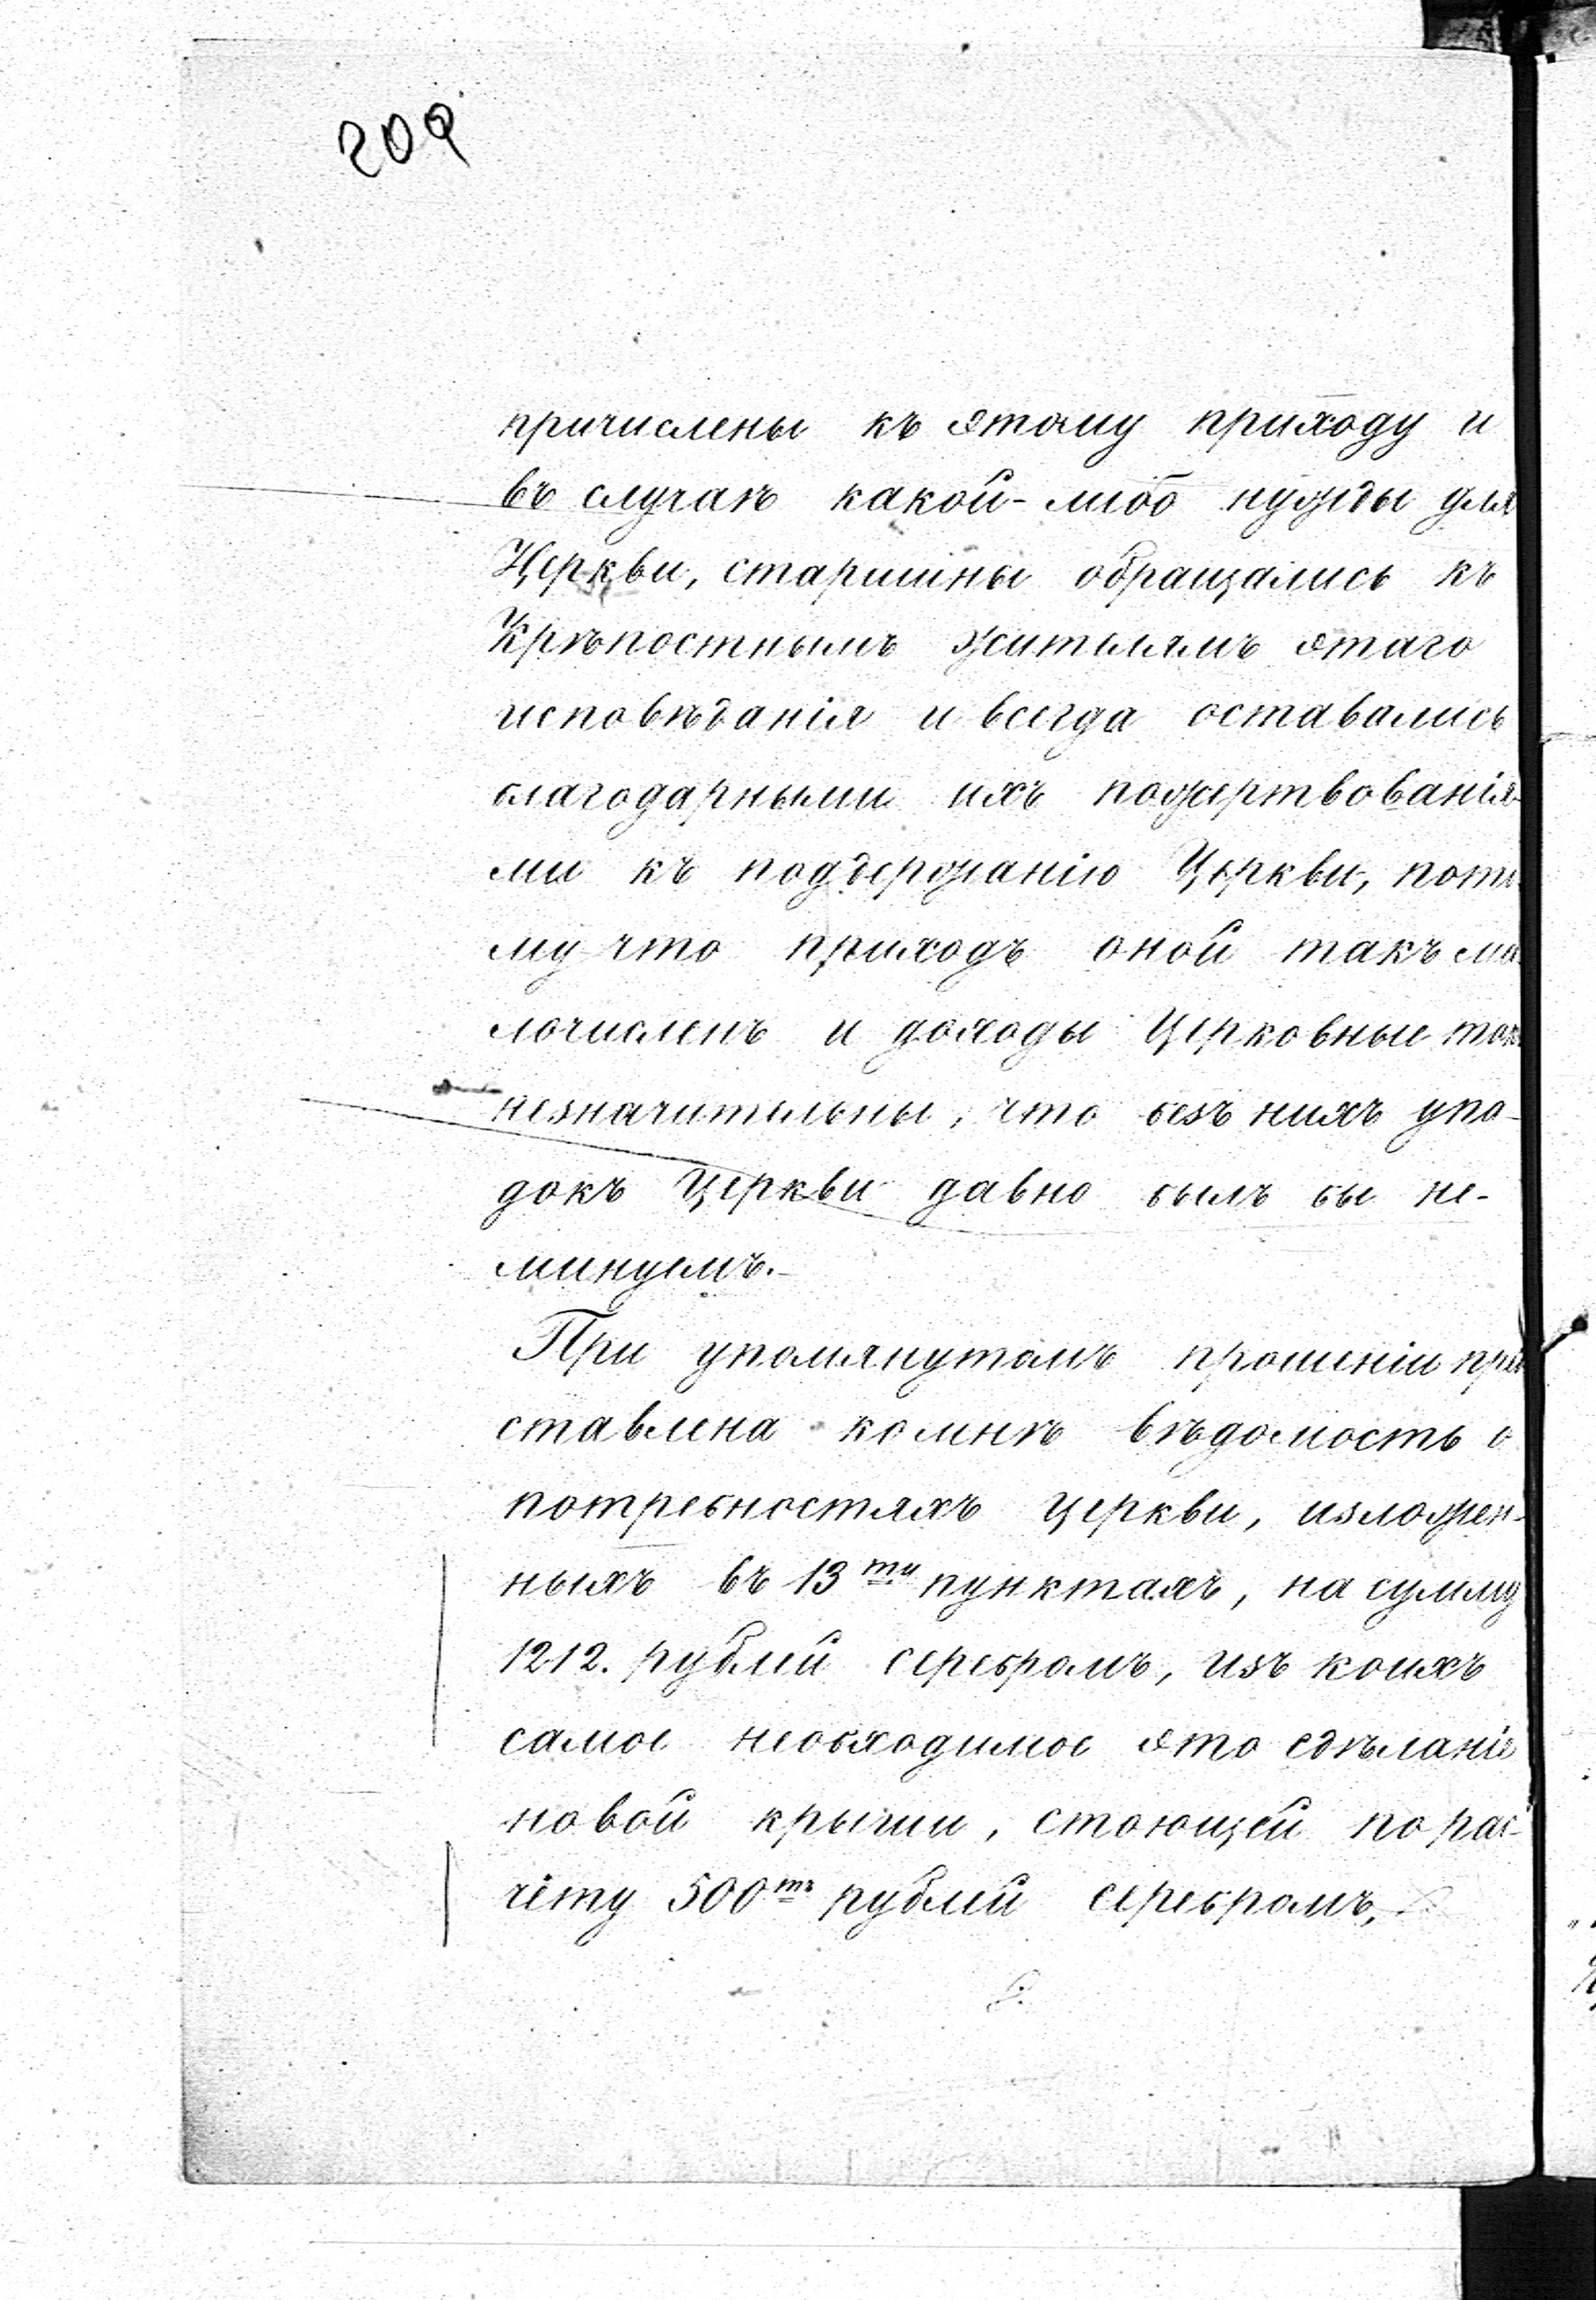 209
причислены къ этому приходу и
въ случаѣ какой-либо нужды для
Церкви, старшины обращались къ
Крѣпостнымъ жителямъ этаго
исповѣданія и всегда оставались
благодарными ихъ пожертвованія-
ми къ поддержанію Церкви, пото
му что приходъ оной такъ ма
лочисленъ и доходы Церковные такъ
незначительны, что безъ нихъ упа-
докъ Церкви давно былъ бы не-
минуемъ.-
При упомянутомъ прошеніи пред
ставлена ко мнѣ вѣдомость о
потребностяхъ церкви, изложен-
ныхъ въ 13ти пунктахъ, на сумму
1212. рублей серебромъ, изъ коихъ
самое необходимое это сдѣланіе
новой крыши, стоющей по рас-
чёту 500тъ рублей серебромъ,